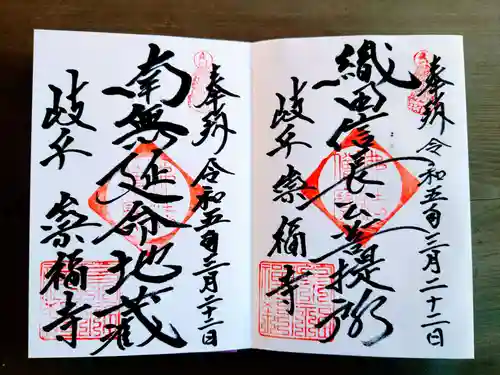 奉拝 令和五年三月二十二日
織田信長公菩提所
岐阜 崇福寺
奉拝 令和五年三月二十二日
南無延命地蔵
岐阜 崇福寺